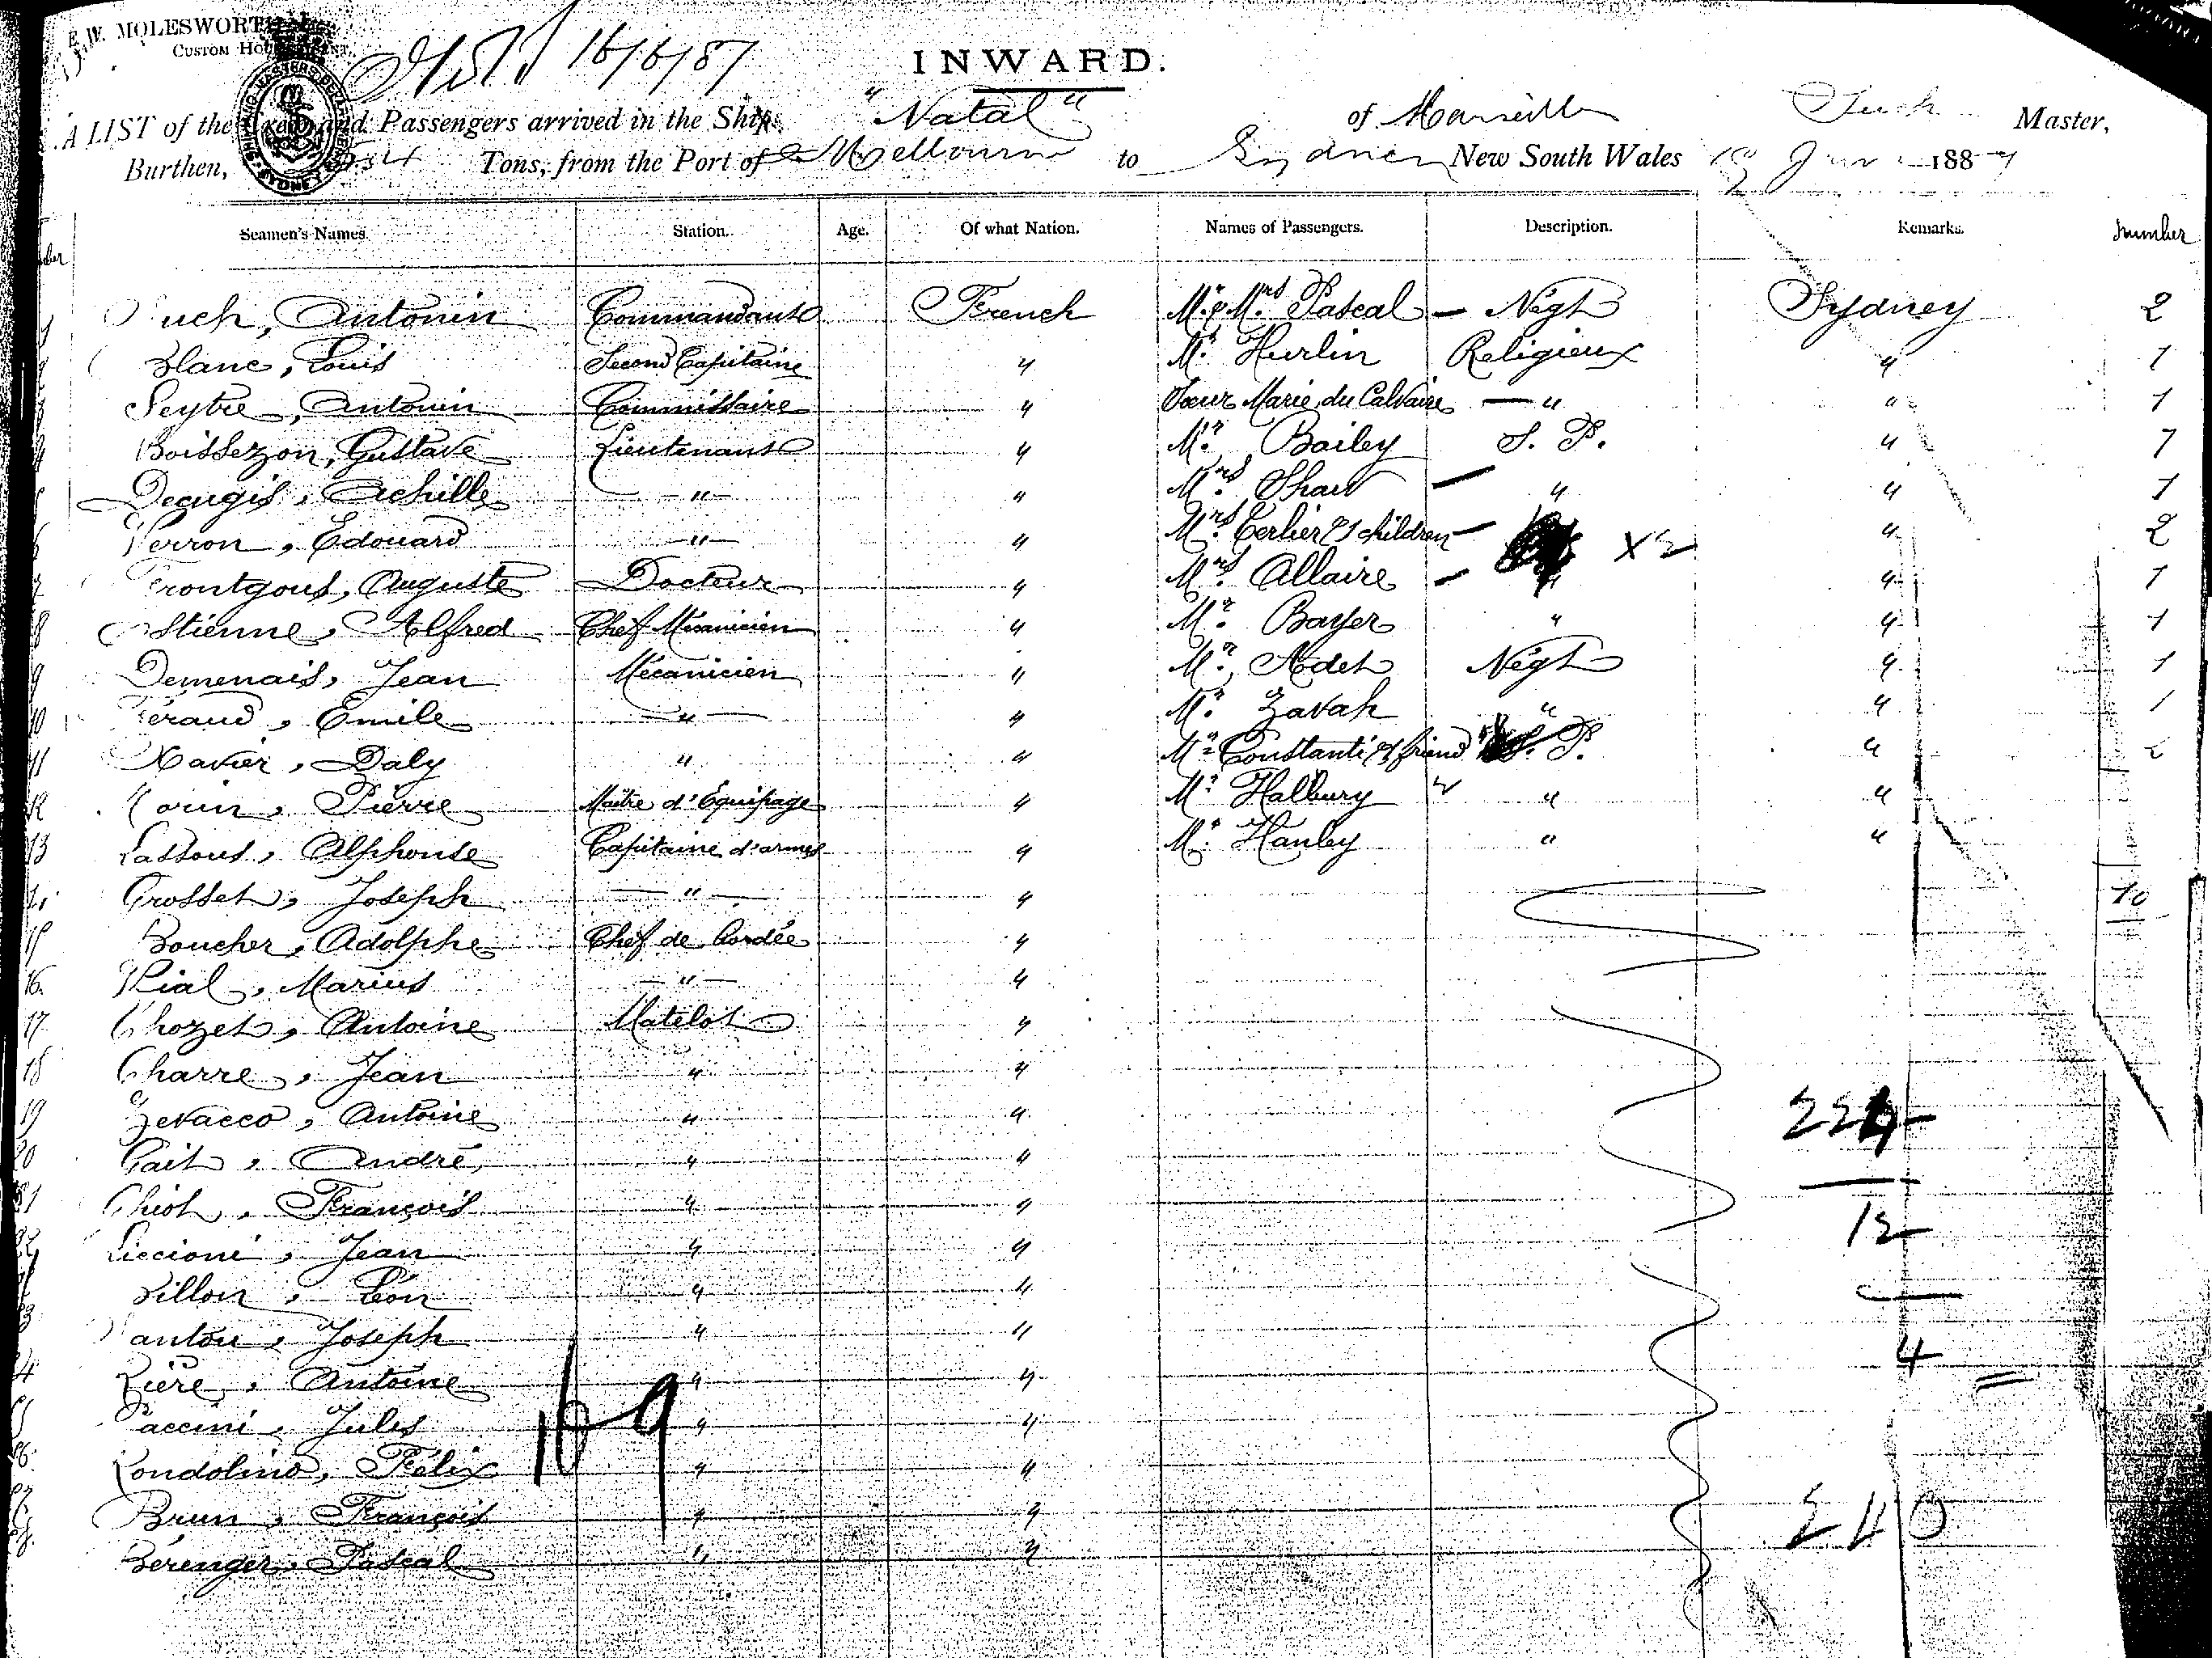 E. W. MOLESWORTH
CUSTOM HOUSE AGENT.
16/6/87
INWARD.
A LIST of the Crew and Passengers arrived in the Ship "Natal" of Marseille Master,
Burthen, Tons, from the Port of Melbourne to Sydney New South Wales June 1887
Seamen's Names. Station. Age. Of what Nation. Names of Passengers. Description. Remarks. Number
uch, Antonin Commandant French Mr. & Mrs. Pascal — Négt Sydney 2
2 Blanc, Louis Second Capitaine " Mr. Hurlin Religieux " 1
3 Seytre, Antonin Commissaire " Soeur Marie du Calvaire — " " 1
4 Boissezon, Gustave Lieutenant " Mr. Bailey S. P. " 1
Decugis, Achille — " — " Mrs. Shaw — " " 1
6 Perron, Edouard — " — " Mrs. Cerlier & 1 children — X 2 " 2
7 Frontgous, Auguste Docteur " Mrs. Allaire — " " 1
8 Estienne, Alfred Chef Mécanicien " Mr. Bayer " " 1
9 Demenais, Jean Mécanicien " Mr. Adet Négt " 1
10 Féraud, Emile — " — " Mr. Zavah " " 1
11 Xavier, Daly " " Mr. Constanti & friend S. P. " 2
12 Morin, Pierre Maître d'Équipage " Mr. Halbury " "
13 Lassous, Alphonse Capitaine d'armes " Mr. Hanley " "
Grosset, Joseph — " — "
15 Boucher, Adolphe Chef de bordée "
16. Rial, Marius — " — "
17 Chozet, Antoine Matelot "
18 Charre, Jean " "
19 Zevacco, Antoine " " 224
20 Gait, André " "
21 Chiot, François " " 12
22 Liccioni, Jean " "
Billon, Léon " "
antou, Joseph " " 4
24 Lière, Antoine " "
Paccini, Jules " "
26. Rondolino, Félix " "
Brun, François " " 240
28. Bérenger, Pascal " "
169